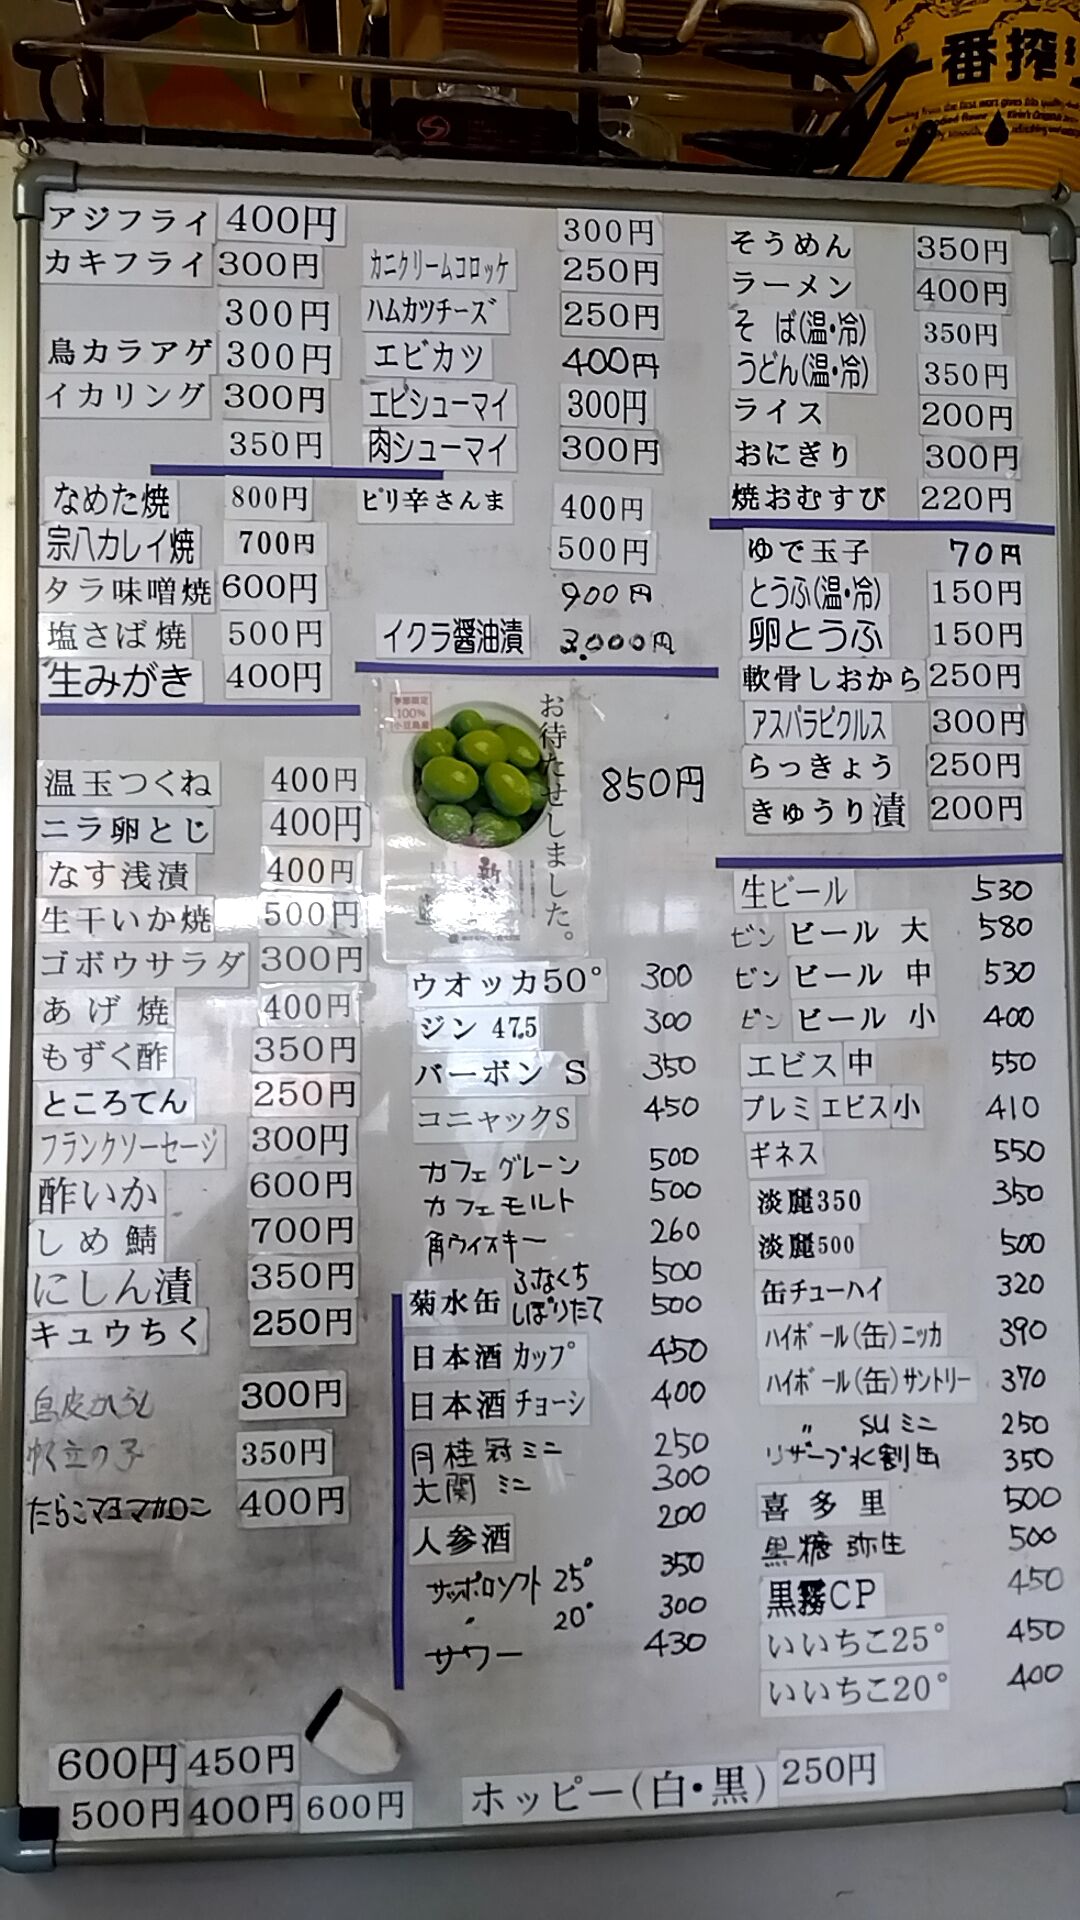 一番搾り
アジフライ 400円
カキフライ 300円
300円
鳥カラアゲ 300円
イカリング 300円
350円
なめた焼 800円
宗八カレイ焼 700円
タラ味噌焼 600円
塩さば焼 500円
生みがき 400円
温玉つくね 400円
ニラ卵とじ 400円
なす浅漬 400円
生干いか焼 500円
ゴボウサラダ 300円
あげ焼 400円
もずく酢 350円
ところてん 250円
フランクソーセージ 300円
酢いか 600円
しめ鯖 700円
にしん漬 350円
キュウちく 250円
300円
350円
たらこマヨマカロニ 400円
600円 450円
500円 400円 600円
300円
カニクリームコロッケ 250円
ハムカツチーズ 250円
エビカツ 400円
エビシューマイ 300円
肉シューマイ 300円
ピリ辛さんま 400円
500円
900円
イクラ醤油漬 3,000円
季節限定
100%
小豆島産
お待たせしました。
850円
ウオッカ50° 300
ジン 47.5 300
バーボン S 350
コニャックS 450
カフェグレーン 500
カフェモルト 500
角ウイスキー 260
菊水缶 ふなくち 500
しぼりたて 500
日本酒 カップ 450
日本酒 チョーシ 400
月桂冠ミニ 250
大関 ミニ 300
人参酒 200
サッポロソフト 25° 350
〃 20° 300
サワー 430
ホッピー(白・黒) 250円
そうめん 350円
ラーメン 400円
そば(温・冷) 350円
うどん(温・冷) 350円
ライス 200円
おにぎり 300円
焼おむすび 220円
ゆで玉子 70円
とうふ(温・冷) 150円
卵とうふ 150円
軟骨しおから 250円
アスパラピクルス 300円
らっきょう 250円
きゅうり漬 200円
生ビール 530
ビン ビール 大 580
ビン ビール 中 530
ビン ビール 小 400
エビス中 550
プレミエビス小 410
ギネス 550
淡麗350 350
淡麗500 500
缶チューハイ 320
ハイボール(缶)ニッカ 390
ハイボール(缶)サントリー 370
〃 SUミニ 250
リザーブ水割缶 350
喜多里 500
黒糖 弥生 500
黒霧CP 450
いいちこ25° 450
いいちこ20° 400